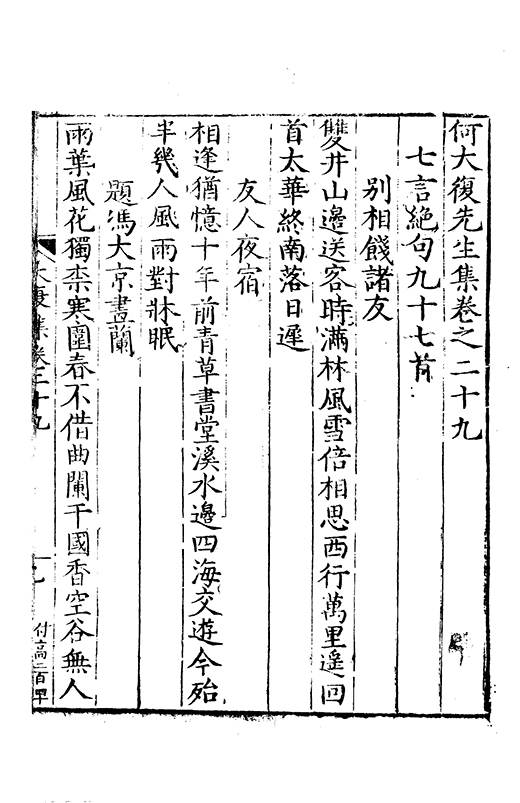 何大復先生集卷之二十九
七言絶句九十七首
別相餞諸友
雙井山邊送客時滿林風雪倍相思西行萬里遥回
首太華終南落日遲
友人夜宿
相逢猶憶十年前青草書堂溪水邊四海交遊今殆
半幾人風雨對牀眠
題馮大京畫蘭
雨葉風花獨柰寒圍春不借曲闌干國香空谷無人
大復集卷二十九
付高二百